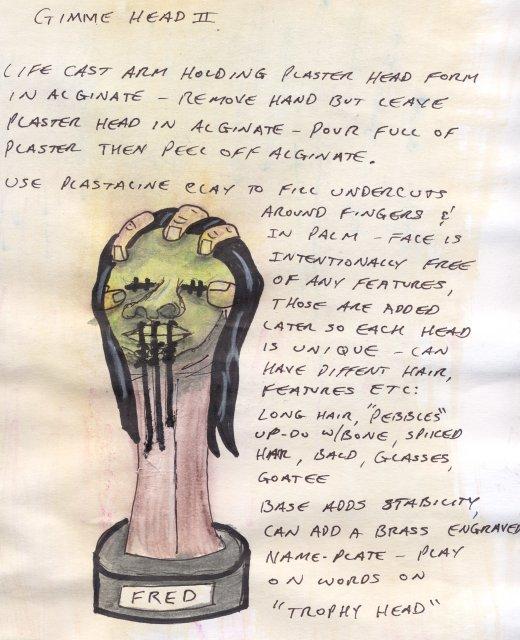 GIMME HEAD II
LIFE CAST ARM HOLDING PLASTER HEAD FORM
IN ALGINATE - REMOVE HAND BUT LEAVE
PLASTER HEAD IN ALGINATE - POUR FULL OF
PLASTER THEN PEEL OFF ALGINATE.
USE PLASTALINE CLAY TO FILL UNDERCUTS
AROUND FINGERS &
IN PALM - FACE IS
INTENTIONALLY FREE
OF ANY FEATURES,
THOSE ARE ADDED
LATER SO EACH HEAD
IS UNIQUE - CAN
HAVE DIFFENT HAIR,
FEATURES ETC:
LONG HAIR, "PEBBLES"
UP-DO W/BONE, SPIKED
HAIR, BALD, GLASSES,
GOATEE
BASE ADDS STABILITY,
CAN ADD A BRASS ENGRAVED
NAME-PLATE - PLAY
ON WORDS ON
"TROPHY HEAD"
FRED